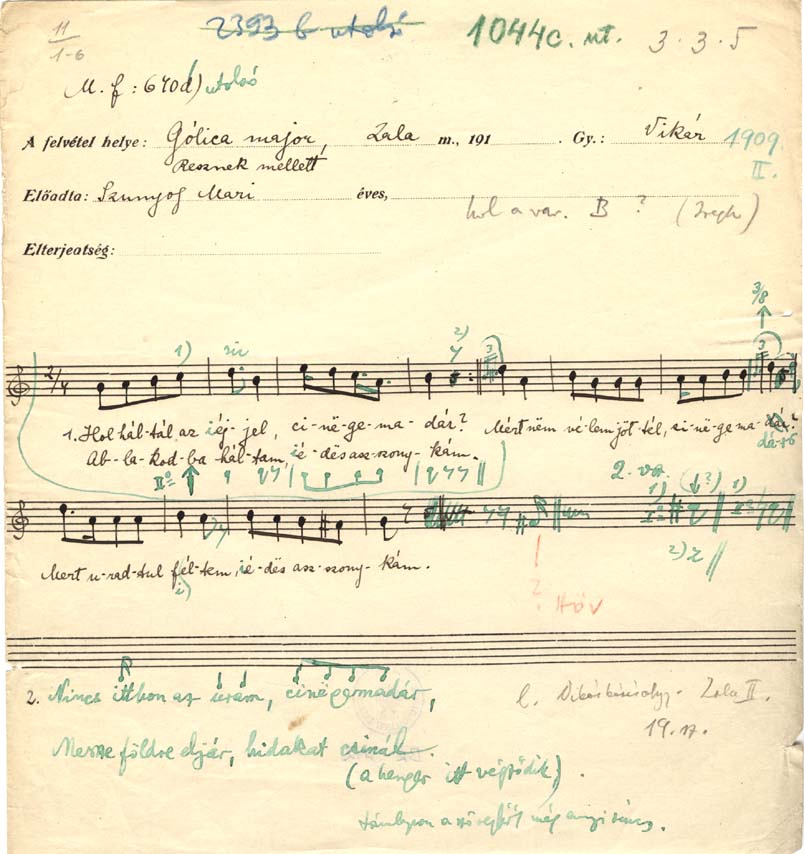 11/1-6
2393 b utolsó
1044c. ut. 3·3·5
M. f: 640d) utolsó
A felvétel helye: Gólica major, Zala m., 191 Gy.: Vikár 1909.
Resznek mellett II.
Előadta: Szunyog Mari éves,
hol a var. B ?
Elterjeatség:
3/8
1) sic 2) 3 3
2/4
1. Hol hál-tál az iéj-jel, ci-në-ge-ma-dár? Mért nëm vé-lem jöt-tél, ci-në-ge ma-dár?
Ab-la-kod-ba hál-tam, ié-dës asz-szony-kám. dáré
IIº 2. va.
1) 1)
2)
Mert u-rad-tul fél-tem, ié-dës asz-szony-kám.
1) ? HÖV
2. Nincs itthon az uram, cinëgemadár,
l. Zala II.
Messze földre eljár, hidakat csinál.
19.
(a henger itt végződik).